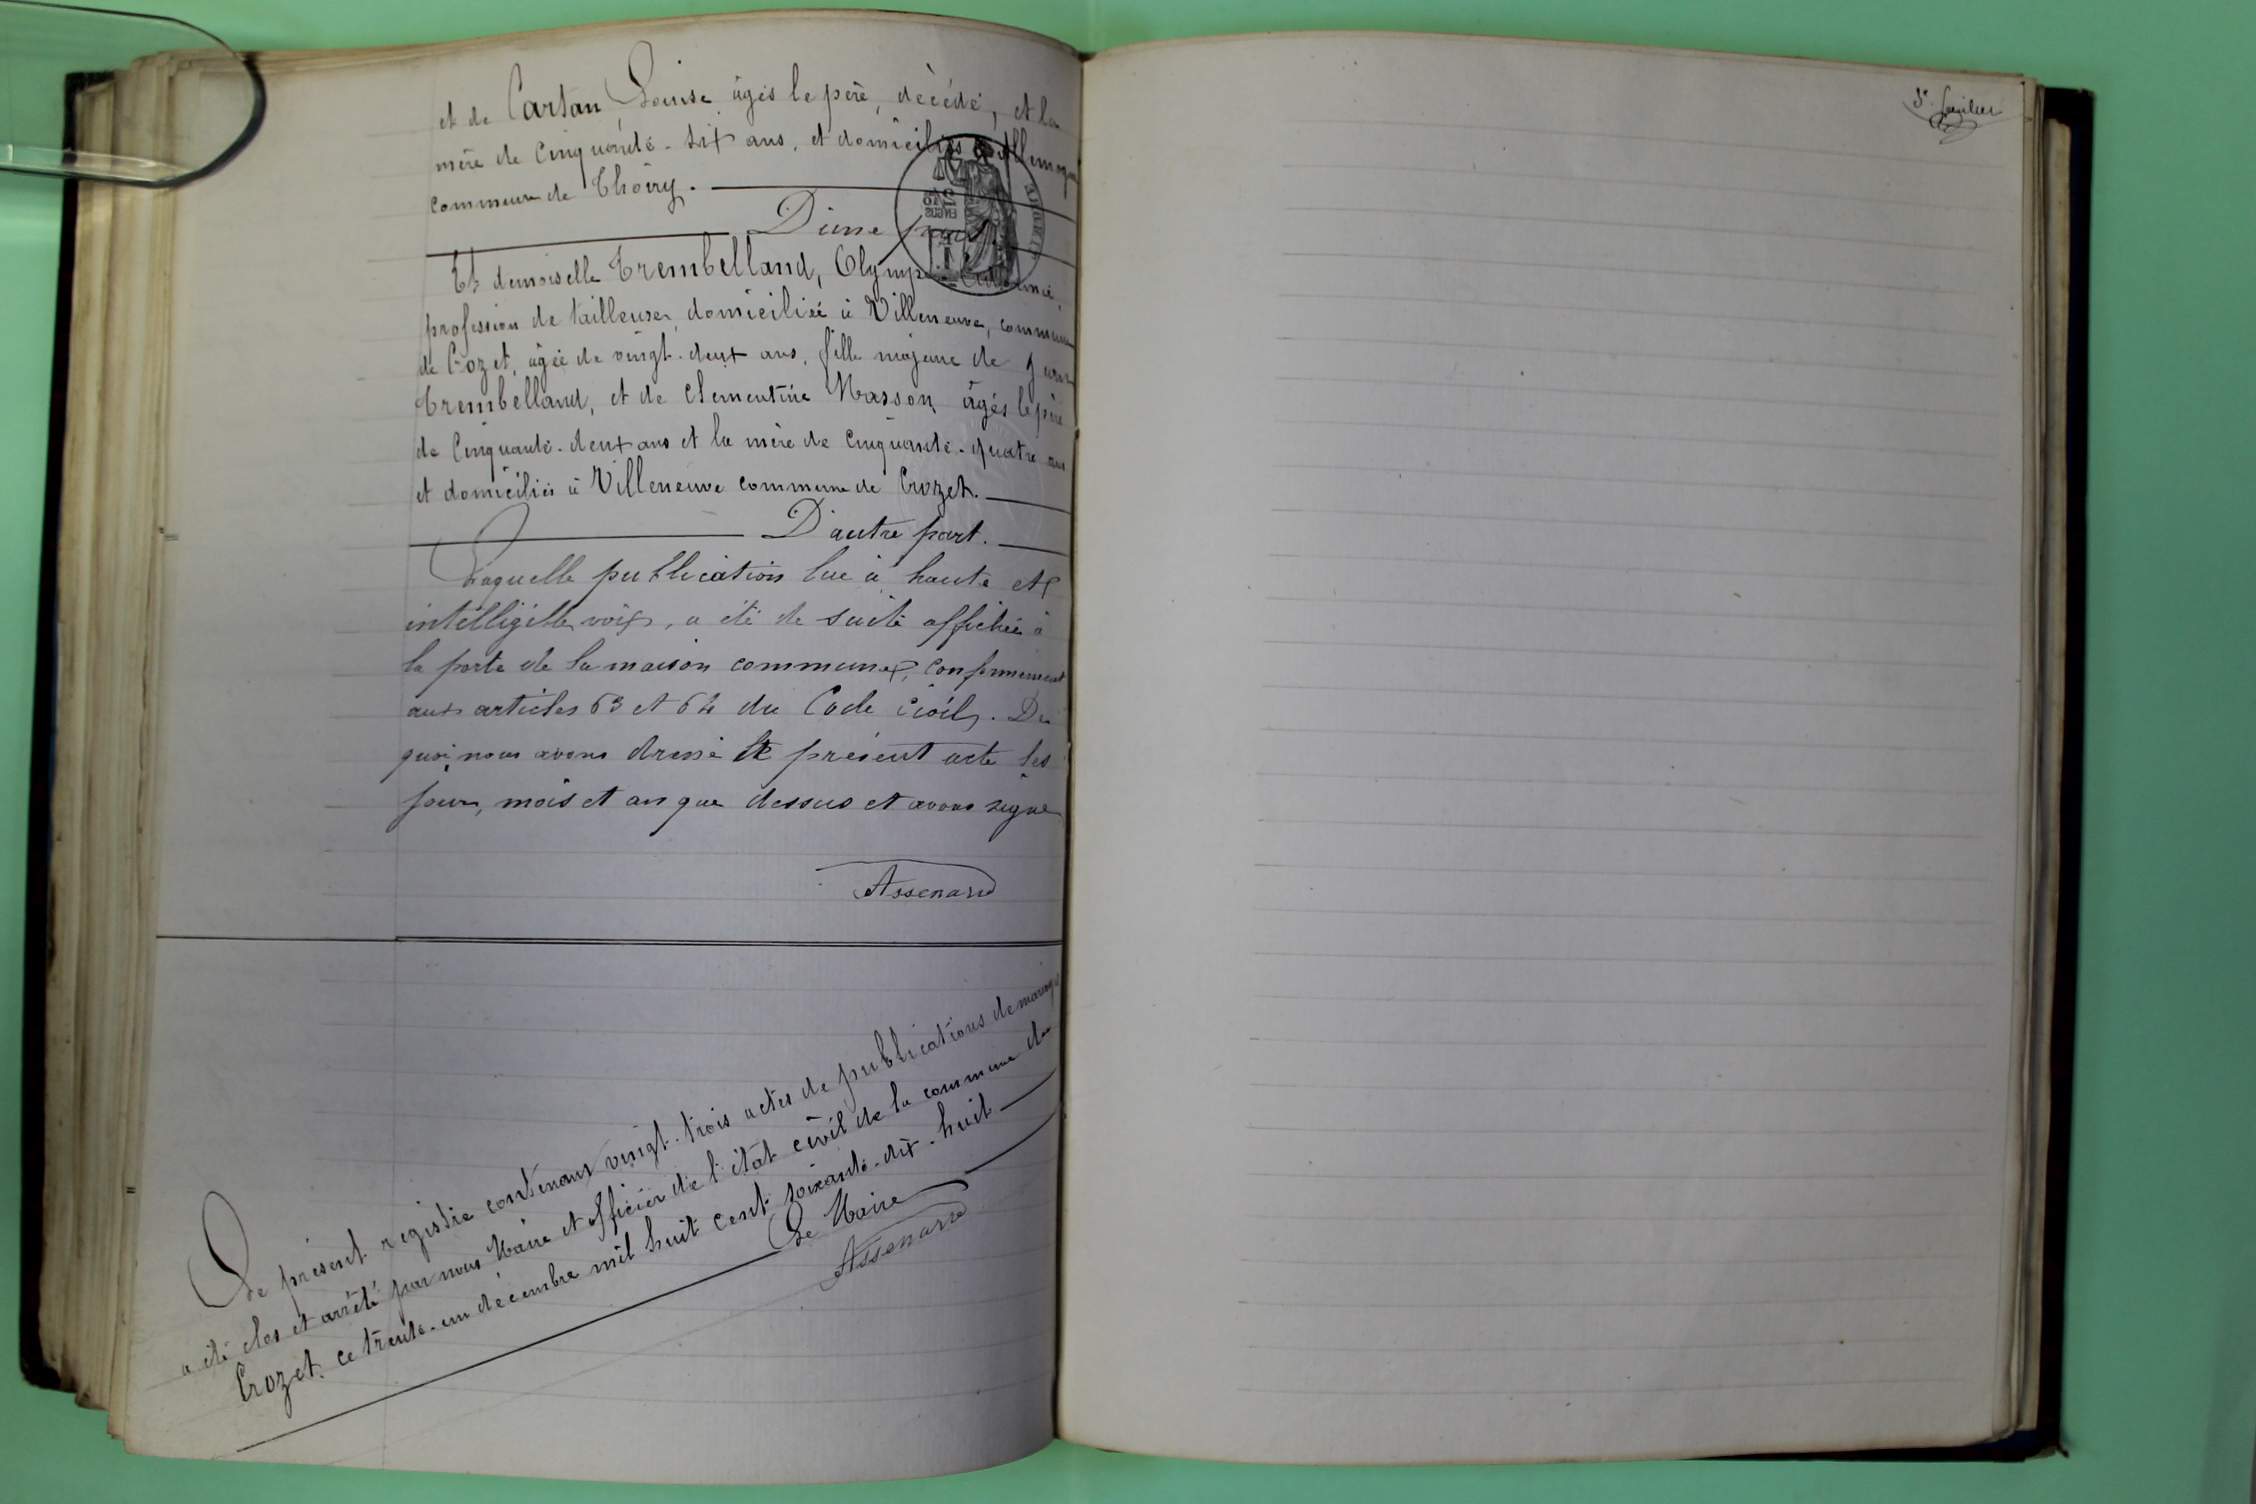 et de Cartan Louise âgés le père, décédé, et la
mère de cinquante-six ans, et domiciliés à Allemogne
commune de Thoiry.
D'une part.
Et demoiselle Trembelland, Olympe
profession de tailleuse, domiciliée à Villeneuve, commune
de Crozet, âgée de vingt-deux ans, fille majeure de
Trembelland, et de Clementine Masson âgés le père
de cinquante-deux ans et la mère de cinquante-quatre ans
et domiciliés à Villeneuve commune de Crozet.
D'autre part.
Laquelle publication lue à haute et
intelligible voix, a été de suite affichée à
la porte de la maison commune, conformément
aux articles 63 et 64 du Code civil. De
quoi nous avons dressé le présent acte les
jour, mois et an que dessus et avons signé
Assenard
Le présent registre contenant vingt-trois actes de publications de mariage
a été clos et arrêté par nous Maire et officier de l'état civil de la commune de
Crozet ce trente-un décembre mil huit cent soixante-dix-huit
Le Maire
Assenard